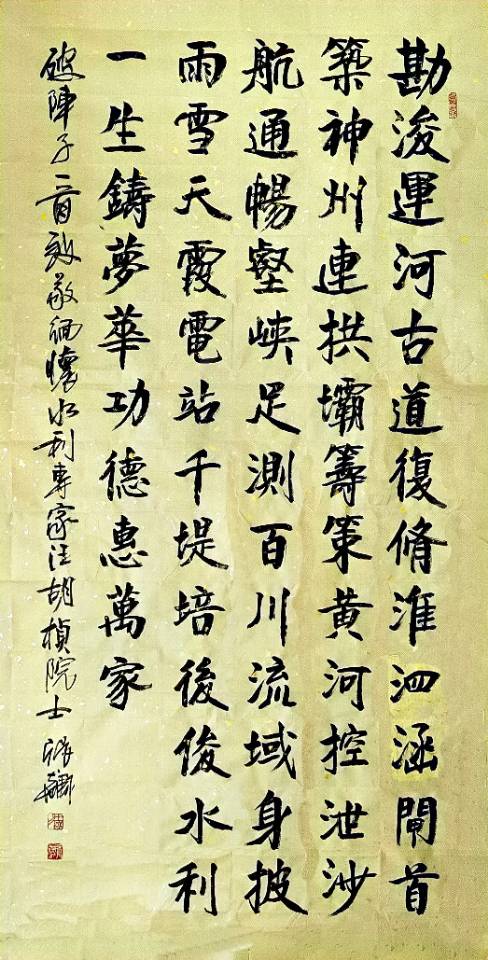 勘浚運河古道復脩淮泗涵閘首
築神州連拱壩籌策黄河控泄沙
航通暢壑峡足測百川流域身披
雨雪天霞電站千堤培後俊水利
一生鑄夢華功德惠萬家
破陣子一首致敬緬懷水利專家汪胡楨院士